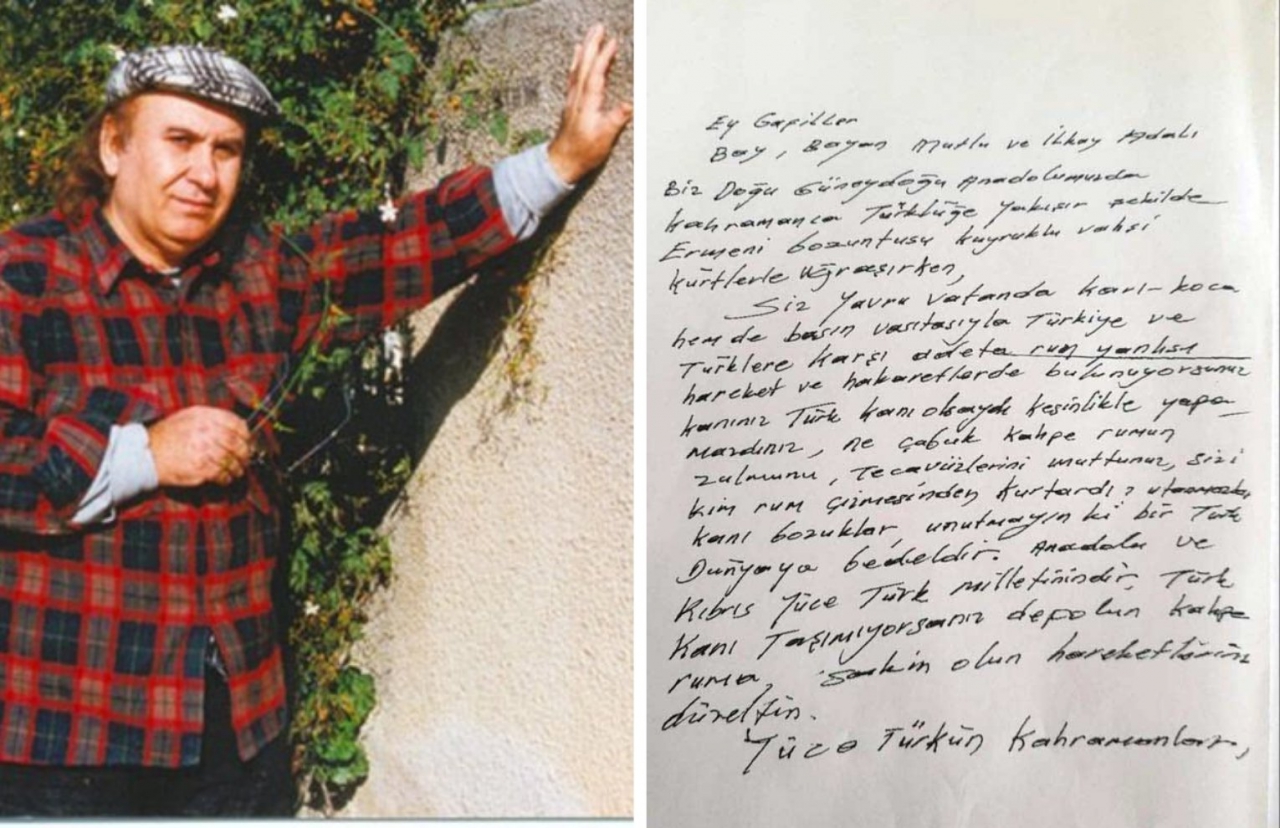 Ey Gafiller
Bay, Bayan Mutlu ve İlkay Adalı
Biz Doğu Güneydoğu Anadolumuzda
kahramanca Türklüğe yakışır şekilde
Ermeni bozuntusu kuyruklu vahşi
kürtlerle uğraşırken,
Siz Yavru vatanda karı-koca
hem de basın vasıtasıyla Türkiye ve
Türklere karşı adeta rum yanlısı
hareket ve hakaretlerde bulunuyorsunuz
kanınız Türk kanı olsaydı kesinlikle yapa
mazdınız, ne çabuk kahpe rumun
zulmunu, tecavüzlerini unuttunuz, sizi
kim rum çizmesinden kurtardı?
kanı bozuklar, unutmayın ki bir Türk
Dünyaya bedeldir. Anadolu ve
Kıbrıs Yüce Türk milletinindir, Türk
Kanı Taşımıyorsanız depolun kahpe
ruma, sakin olun hareketlerinizi
düzeltin.
Yüce Türkün Kahramanları,